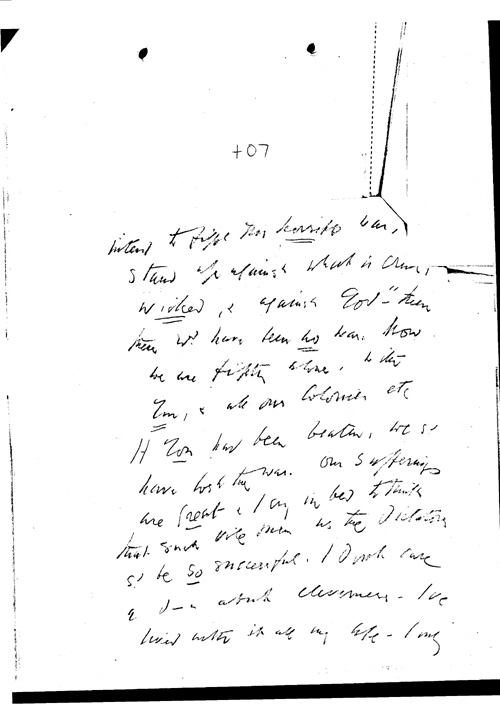 +07
intend to fight this horrible war,
stand up against what is cruel,
wicked, & against God - then
there wd have been no war. Now
we are fighting alone,
You, & all our Colonies etc
If You had been beaten, we sd
have lost the war. Our sufferings
are great & I cry in bed to think
that such vile men as the Dictators
sd be so successful. I don't care
a d—n about cleverness - I've
lived with it all my life - I only